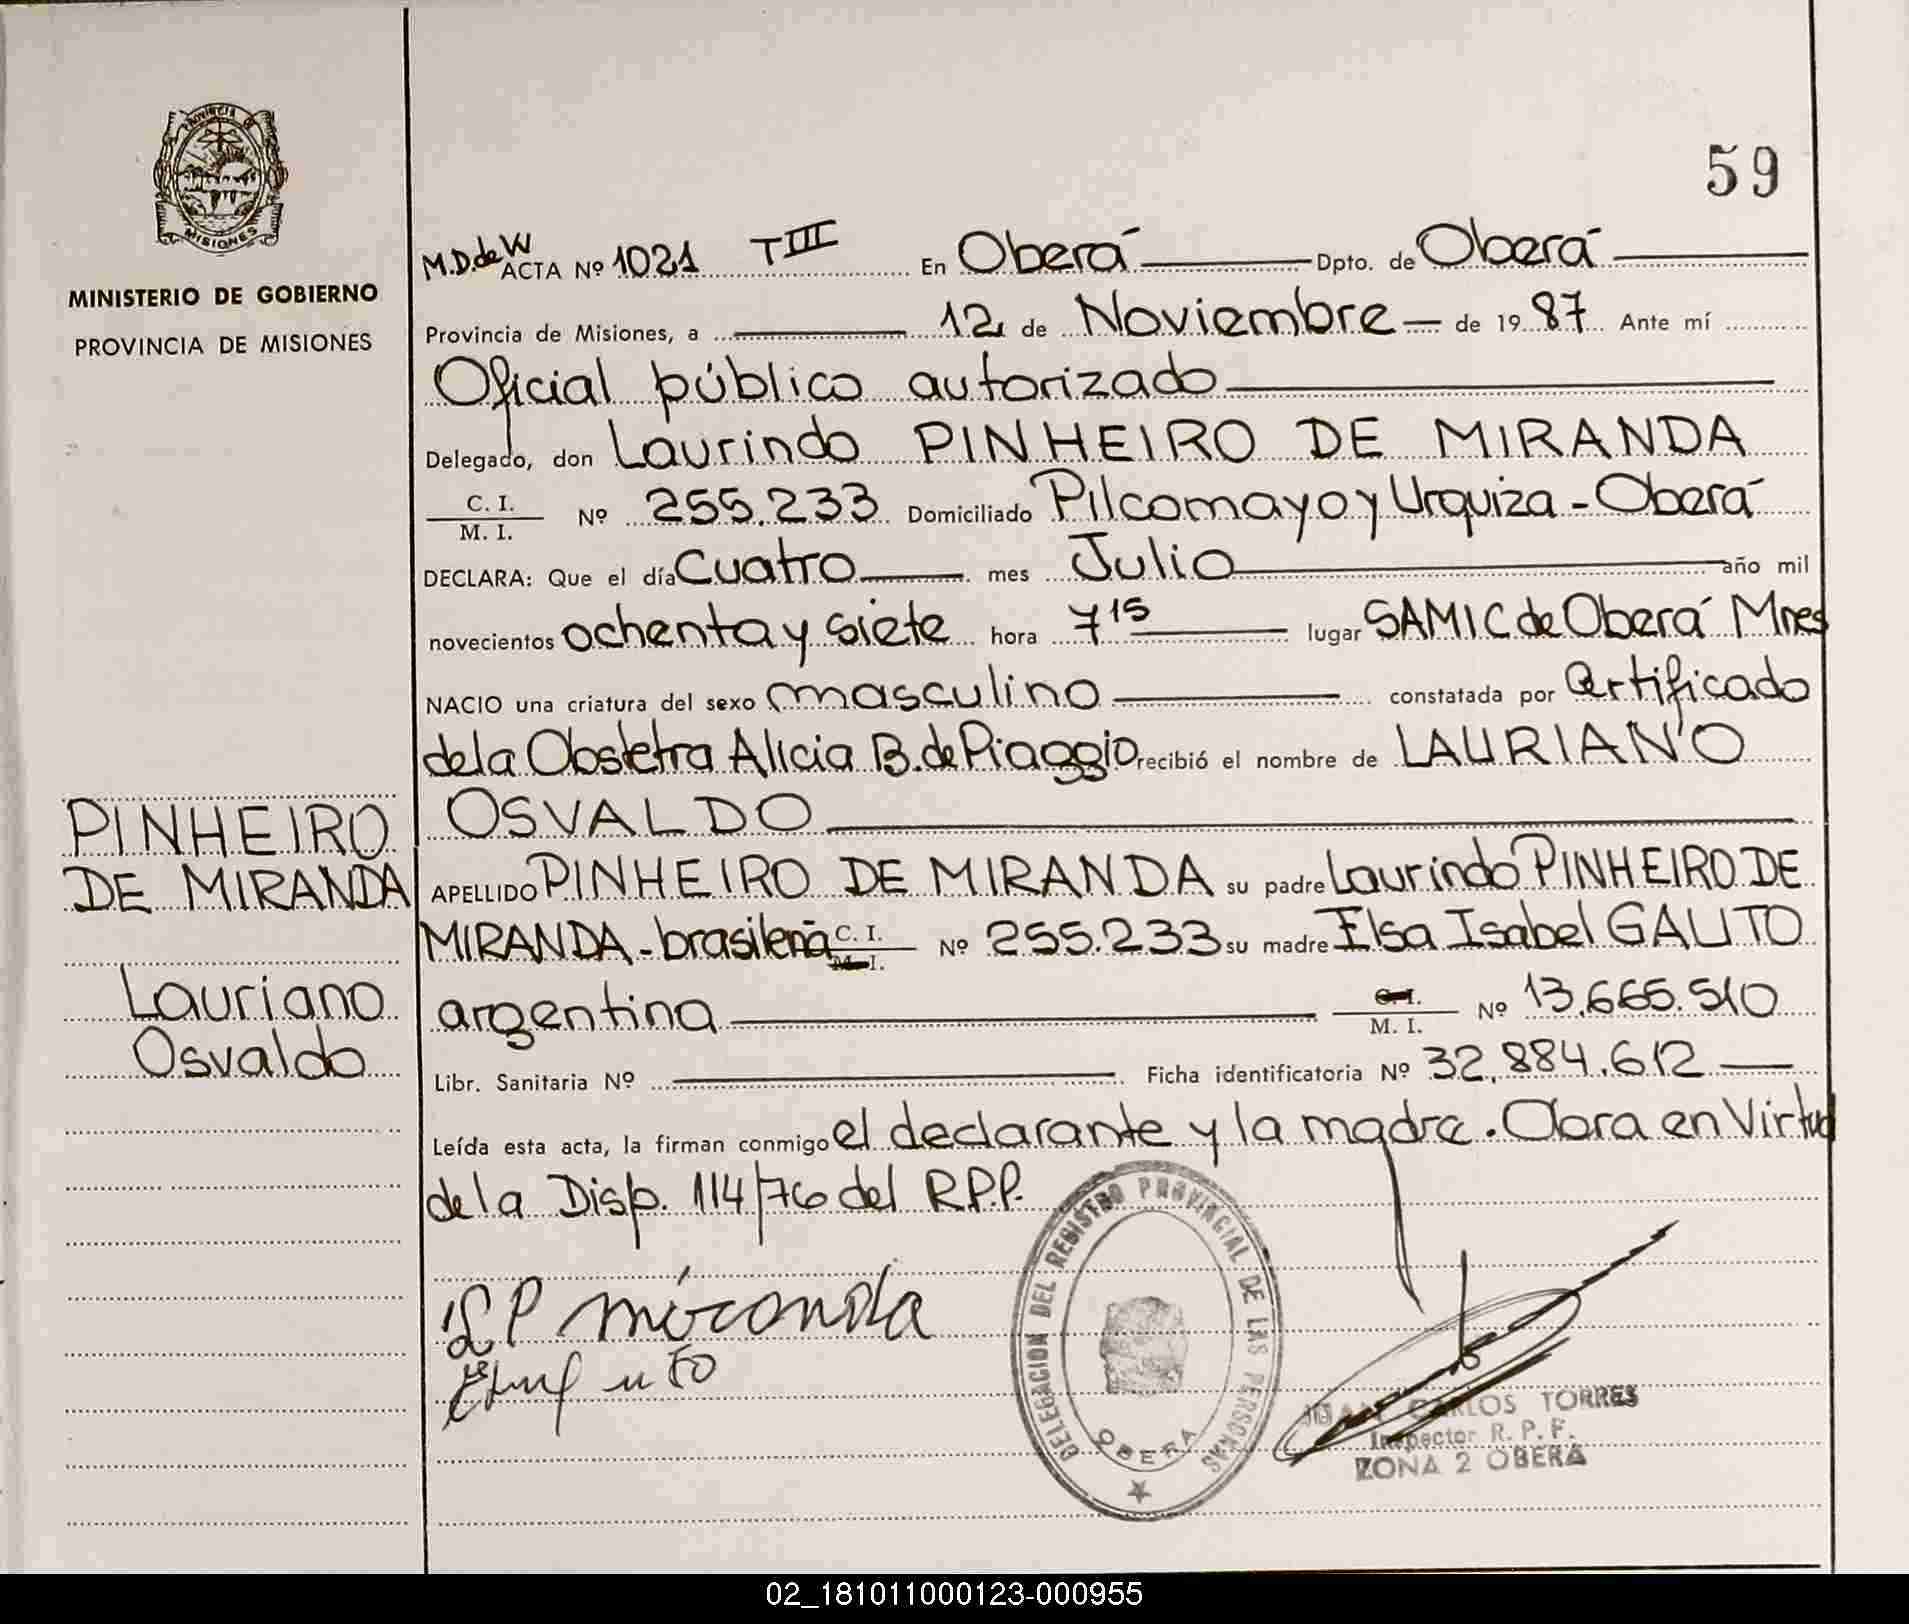 PROVINCIA DE
MISIONES
MINISTERIO DE GOBIERNO
PROVINCIA DE MISIONES
59
M.D.de W
ACTA Nº 1021 TIII En Oberá Dpto. de Oberá
Provincia de Misiones, a 12 de Noviembre de 19 87 Ante mí
Oficial público autorizado
Delegado, don Laurindo PINHEIRO DE MIRANDA
C. I.
M. I. Nº 255.233 Domiciliado Pilcomayo y Urquiza - Oberá
DECLARA: Que el día Cuatro mes Julio año mil
novecientos ochenta y siete hora 7 15 lugar SAMIC de Oberá Mnes
NACIO una criatura del sexo masculino constatada por Certificado
de la Obstetra Alicia B. de Piaggio recibió el nombre de LAURIANO
OSVALDO
APELLIDO PINHEIRO DE MIRANDA su padre Laurindo PINHEIRO DE
MIRANDA - brasileña C. I. M. I. Nº 255.233 su madre Elsa Isabel GAUTO
argentina C. I. M. I. Nº 13.665.510
Libr. Sanitaria Nº Ficha identificatoria Nº 32.884.612
Leída esta acta, la firman conmigo el declarante y la madre. Obra en Virtud
de la Disp. 114/76 del R.P.P.
PINHEIRO
DE MIRANDA
Lauriano
Osvaldo
L P miranda
DELEGACION DEL REGISTRO PROVINCIAL DE LAS PERSONAS
OBERA
JUAN CARLOS TORRES
Inspector R. P. P.
ZONA 2 OBERA
02_181011000123-000955